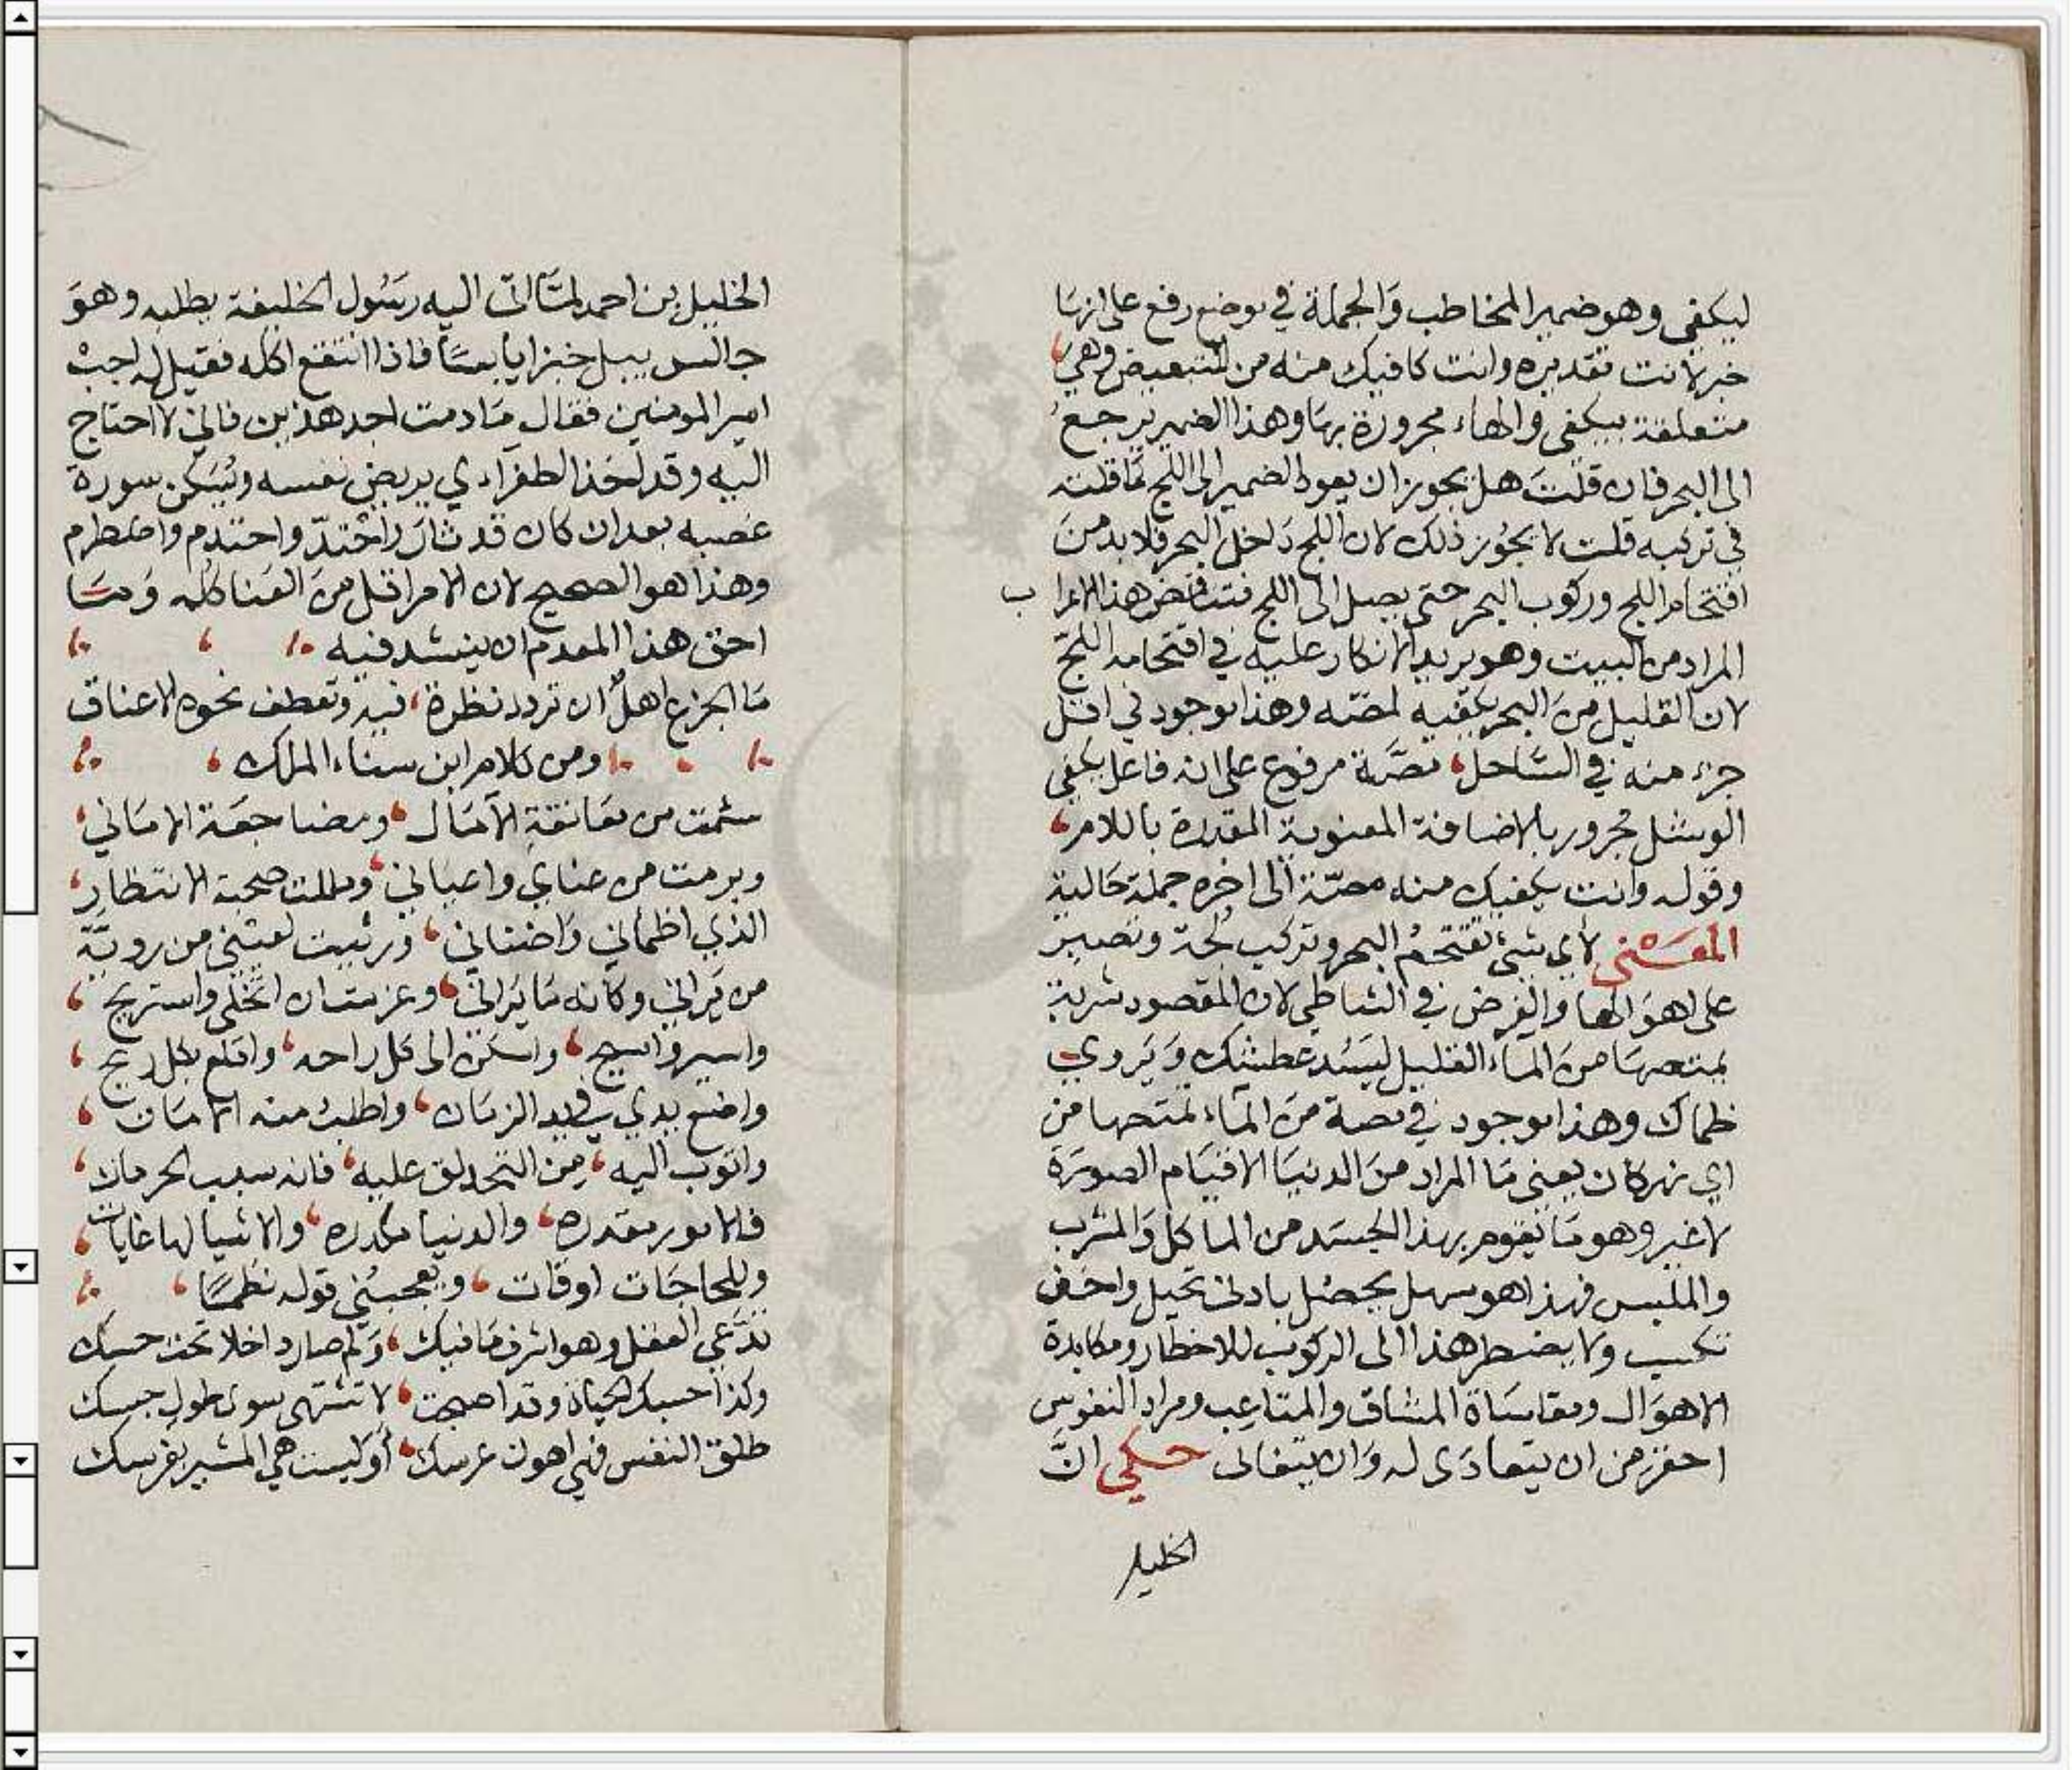 ليكفي وهو ضمير المخاطب وَالجملة في موضع رفع على انهَا
خبر لانت تقديره وانت كافيك منه من للتبعيض وهي
متعلقة بيكفي والهاء مجرورة بهَا وهذا الضمير يرجعُ
الى البحر فان قلتَ هل يجوز ان يعود الضمير الى اللج كما قلته
في تركبه قلت لا يجُوز ذلك لان اللج دَاخل البحر فلا بد منَ
اقتحام اللج وركوب البحر حتى يصل الى اللج فتناقض هذا الاعراب
المراد من البيت وهو يريد الانكار عليه في اقتحامه اللجّ
لان القليل منَ البحر يكفيه لمصّه وهذا موجود في اقل
جزء منه في السَّاحل، مصَّة مرفوع على انه فاعل يكفي
الوشل مجرور بالاضافة المعنوية المقدرة باللام،
وقوله وانت يكفيك منه مصّة الى اخره جملة حَالية
المعَنى لاي شيْ تقتحمُ البحر وتركب لُجّه وتصبر
على اهوَالها والغرض في الشاطي لان المقصود شربة
تمتصهَا منَ الماء القليل ليَسُد عَطشك وَيَروي
ظماك وهذا موجود في مصة منَ المآء تمتصها من
اي نهر كان يعني مَا المراد منَ الدنيَا الا قيَام الصورَة
لا غير وهو مَا يَقوم بهذا الجسَد من الماكل وَالمشرب
والملبس فهذا هو سهل يحصُل بادنى تحيل واخف
تكسب ولا يضطر هذا الى الركوب للاخطار ومكابدة
الاهوَال ومقاسَاة المشاق والمتاعِب ومراد النفوس
احقر من ان يتعادَى له وَان يتفانى حكي انَّ
الخليل
الخليل بن احمد لمَّا اتى اليه رسُول الخليفة يطلبه وهوَ
جالس يبل خبزا يابسَاً فاذا انتقع اكله فقيل له اجبْ
امير المومنين فقال مَا دمت اجد هذين فاني لا احتاج
اليه وقد اخذ الطغراءي يريض نفسه ويُسَكن سورة
غضبه بعد ان كان قد ثار وَاحْتدّ واحتدم واضطرم
وهذا هو الصحيح لان الامر اقل منَ العَنا كله وَمَا
احق هذا المعدم ان ينشد فيه
مَا الجزع اهلٌ ان تردد نظرة، فيه وتعطف نحوه الاعناق
ومن كلام ابن سناء الملك،
سئمت من معَانقةِ الآمَال، ومضاجعَة الامَاني،
وبرمت من عناي واعياني، ومللت صحبة الانتظار،
الذي اظماني وَاضناني، وَرثيت لعيْني من رويَّة
من يَراني وكانه مَا يَرانى، وعزمت ان اتخلى واستريح،
واسير واسيح، واسكن الى كل راحه، واقلع بكل ريح،
واضع يدي في يد الزمَان، واطلبُ منه الامَان،
واتوب اليه، مِن التحدلق عليه، فانه سبب الحرمان،
فالامور مقدره، والدنيا مكدره، والاشيا لها غايات،
وللحاجَات اوقات، ويعجبُني قوله نظمًا،
تدّعي العقل وهو اشرف مَا فيك، وَلم صار داخلا تحت حسك
وكذا حسبك الحياة وقد اصبحت، لا تشتهى سوى طول حبسك
طلق النفس فهي اهون عرسك، أوَ ليست هي المشير بغرسك